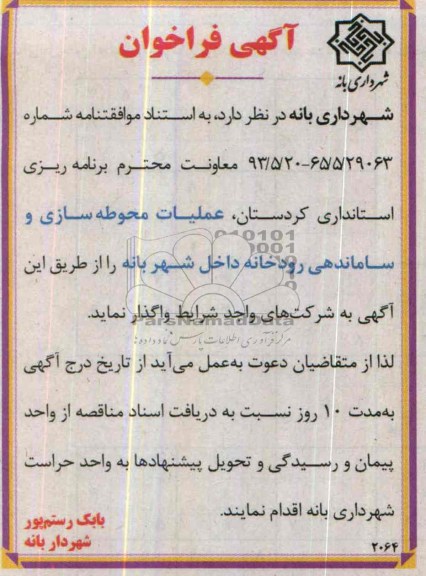 آگهی فراخوان
شهرداری بانه
شـهرداری بانه در نظر دارد، به استناد موافقتنامه شماره
۹۳/۵/۲۰-۶۵/۵/۲۹۰۶۳ معاونت محترم برنامه ریزی
استانداری کردستان، عملیات محوطه سازی و
ساماندهی رودخانه داخل شهر بانه را از طریق این
آگهی به شرکت‌های واجد شرایط واگذار نماید.
ParsNamadData
مرکز فرآوری اطلاعات پارس نماد داده‌ها
لذا از متقاضیان دعوت به‌عمل می‌آید از تاریخ درج آگهی
به‌مدت ۱۰ روز نسبت به دریافت اسناد مناقصه از واحد
پیمان و رسیدگی و تحویل پیشنهادها به واحد حراست
شهرداری بانه اقدام نمایند.
بابک رستم‌پور
شهردار بانه
۲۰۶۴